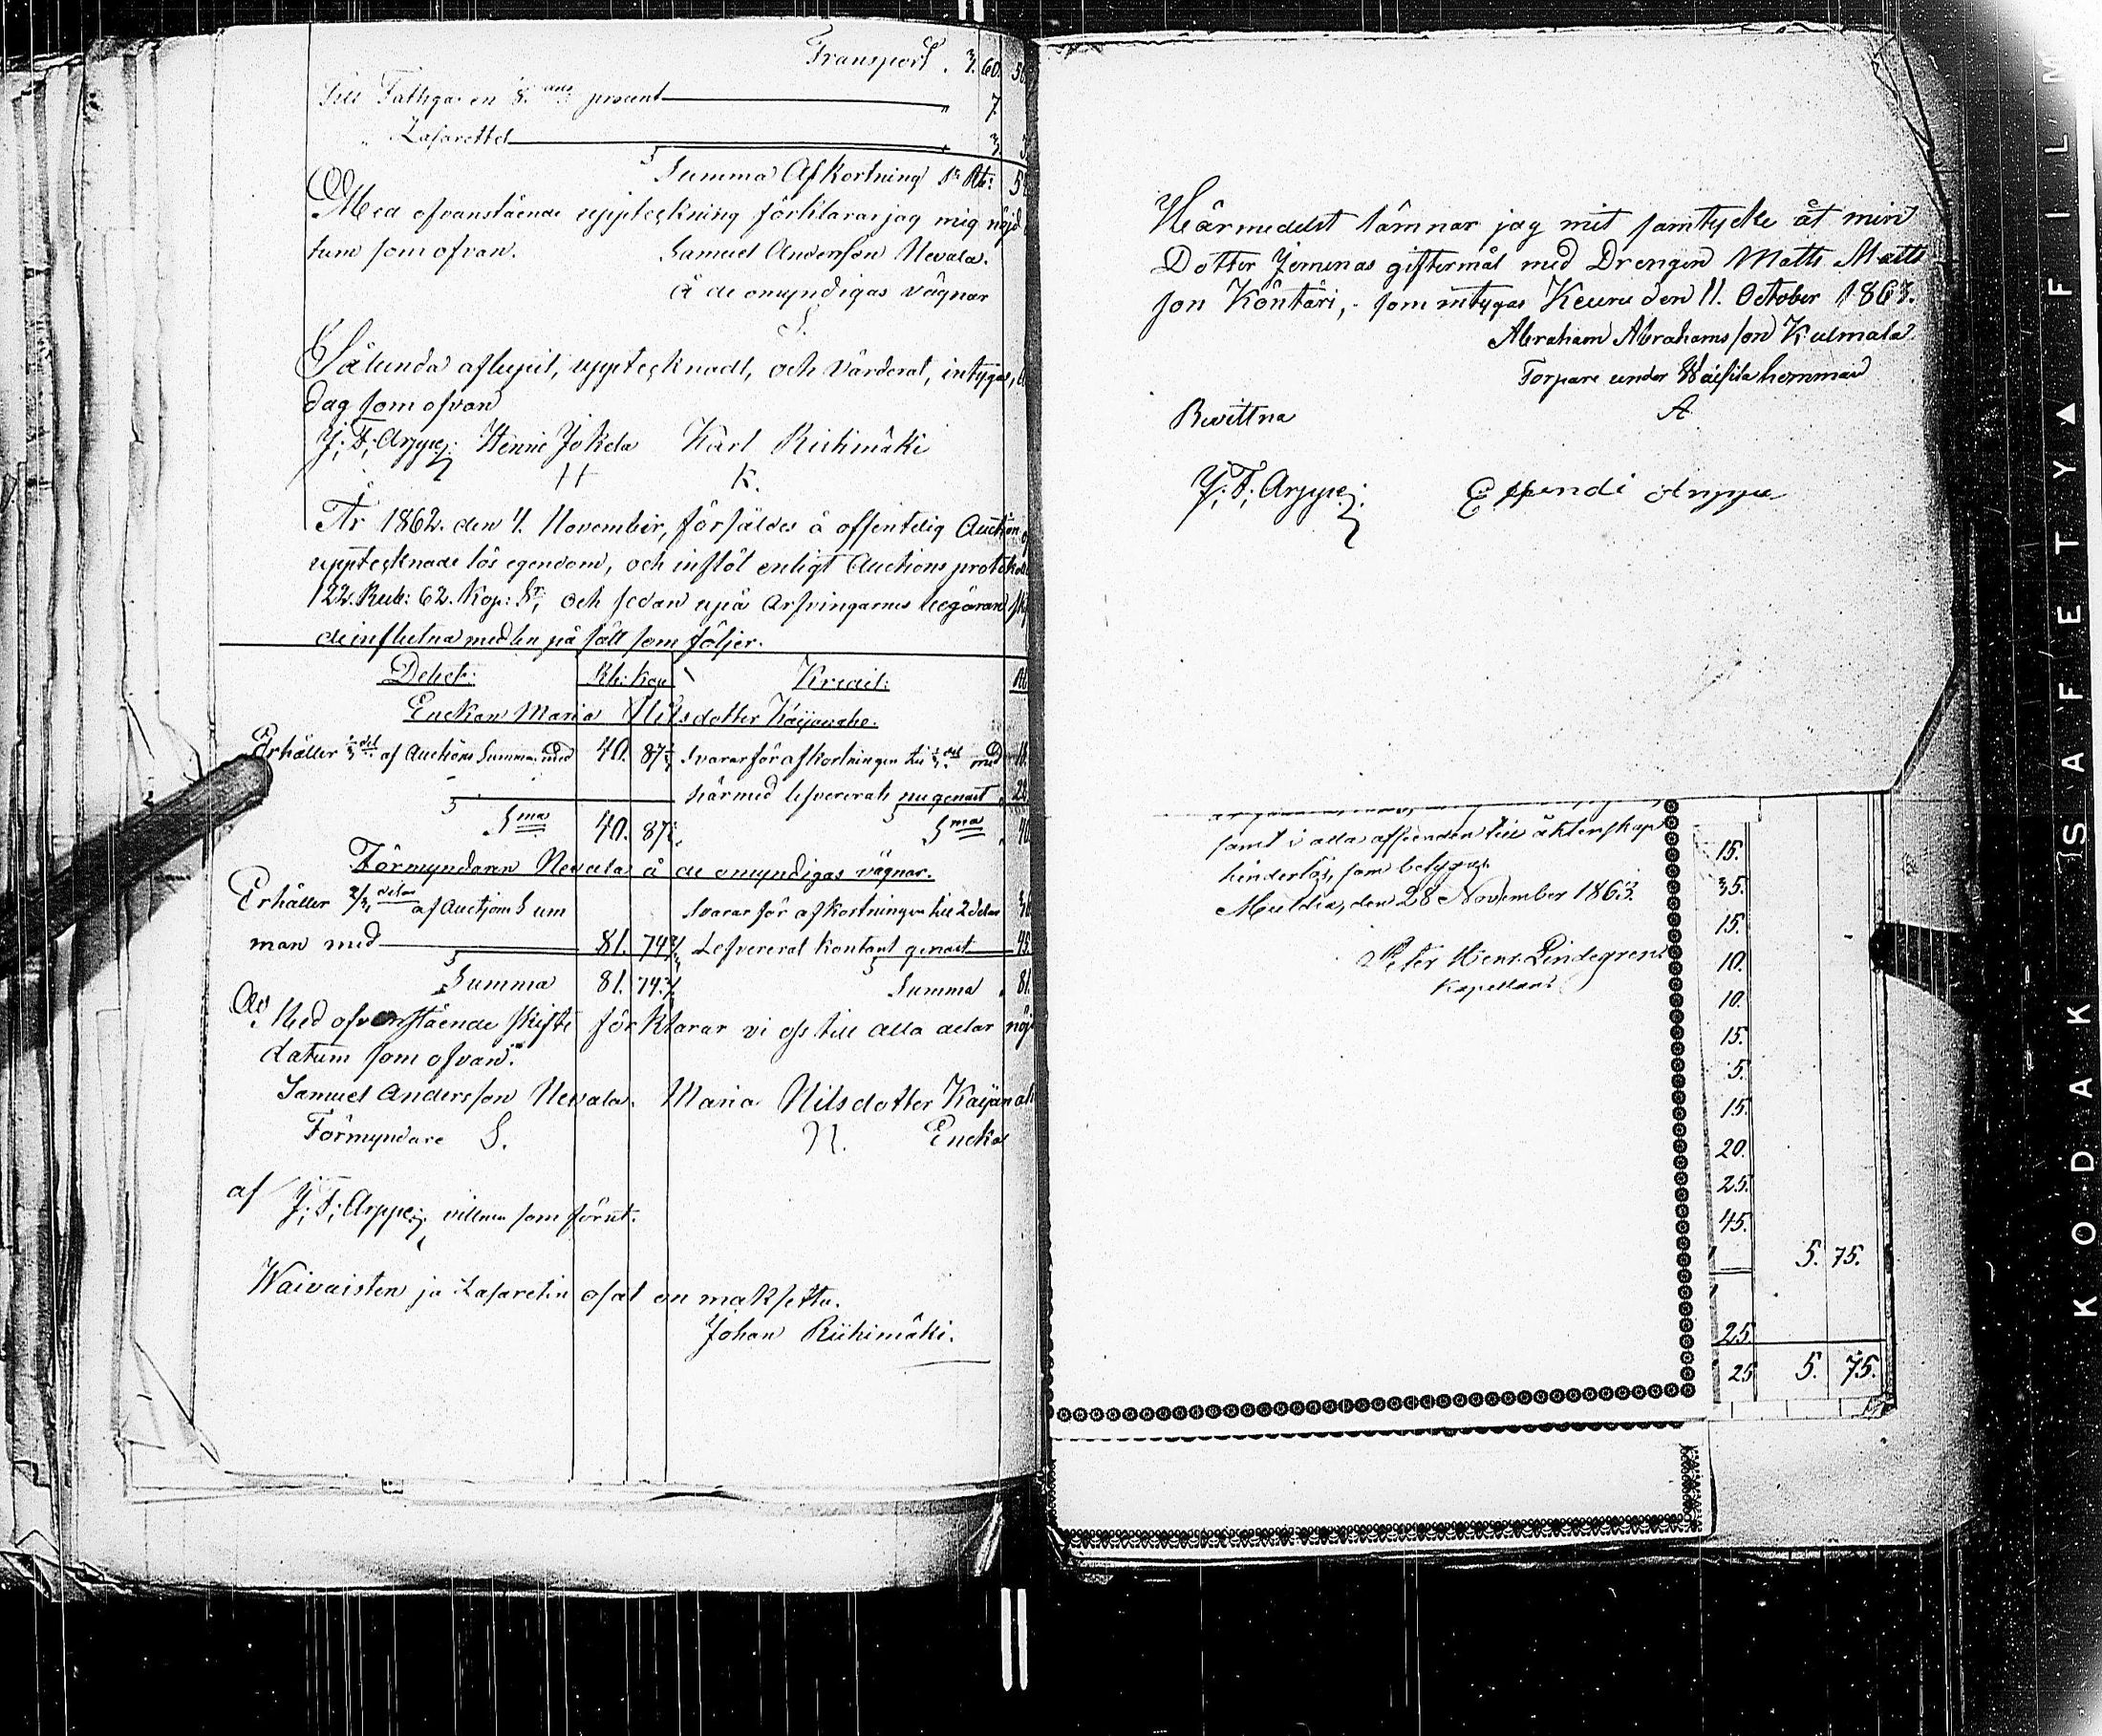 Transport . 60. 50
Till Fattiga en 8:dels procent " 7.
" Lasarettet " 3. 3
Summa Afkortning S:r Rb: 5
Med ofvanstående uppteckning förklarar jag mig nöjd
tum som ofvan. Samuel Andersson Nevala.
å de omyndigas vägnar
S.
Sålunda aflupit, upptecknadt, och Värderat, intygar,
dag som ofvan
J: F: Arppe: Henric Jokela Karl Riihimäki
H K.
År 1862. den 4. November, försåldes å offentelig Auction
upptecknade lös egendom, och inflöt enligt Auctions protokoll
122. Rub: 62. Kop: Sr, och sedan uppå Arfvingarnes begäran
de influtna medlen på sätt som följer.
Debet: Rb: Kop Kredit:
Enckan Maria Nilsdotter Käijänahe.
Erhåller 1/3 del af Auctions Summan med 40. 87 1/3 Svarar för afkortningen till 1/3 del med
härmed lefvererats nu genast 28
Sma 40. 87 Sma 40
Förmyndaren Nevala å de omyndigas vägnar.
Erhåller 2/3 delar af Auctjons Sum Svarar för afkortningen till 2 delar
man med 81. 74 Lefvererat kontant genast 45
Summa 81. 74 Summa 81.
Med ofvanstående skifte förklarar vi oss till alla delar nöj
datum som ofvan.
Samuel Andersson Nevala. Maria Nilsdotter Käijänah
Förmyndare S. N. Encka
af J: F: Arppe: vittna som förut.
Waivaisten ja Lasaretin osat on maksettu.
Johan Riihimäki.
Härmedelst lämnar jag mit samtycke åt min
Dotter Jeminas giftermål med Drengen Matts Matts
son Köntäri, som intygas Keuru den 11. October 1863.
Abraham Abrahamsson Kulmala
Torpare under Wäisila hemman
A.
Bevittna
J: F: Arppe: Ependi Arppe
samt i alla afseenden till äktenskap
hinderlös, som betygas
Multia, den 28 November 1863.
Peter Henr. Lindegren
Kapellan
15.
35.
15.
10.
10.
15.
5.
15.
20.
25.
45.
5. 75.
25.
25 5. 75.
KODAK SAFETY▲FILM